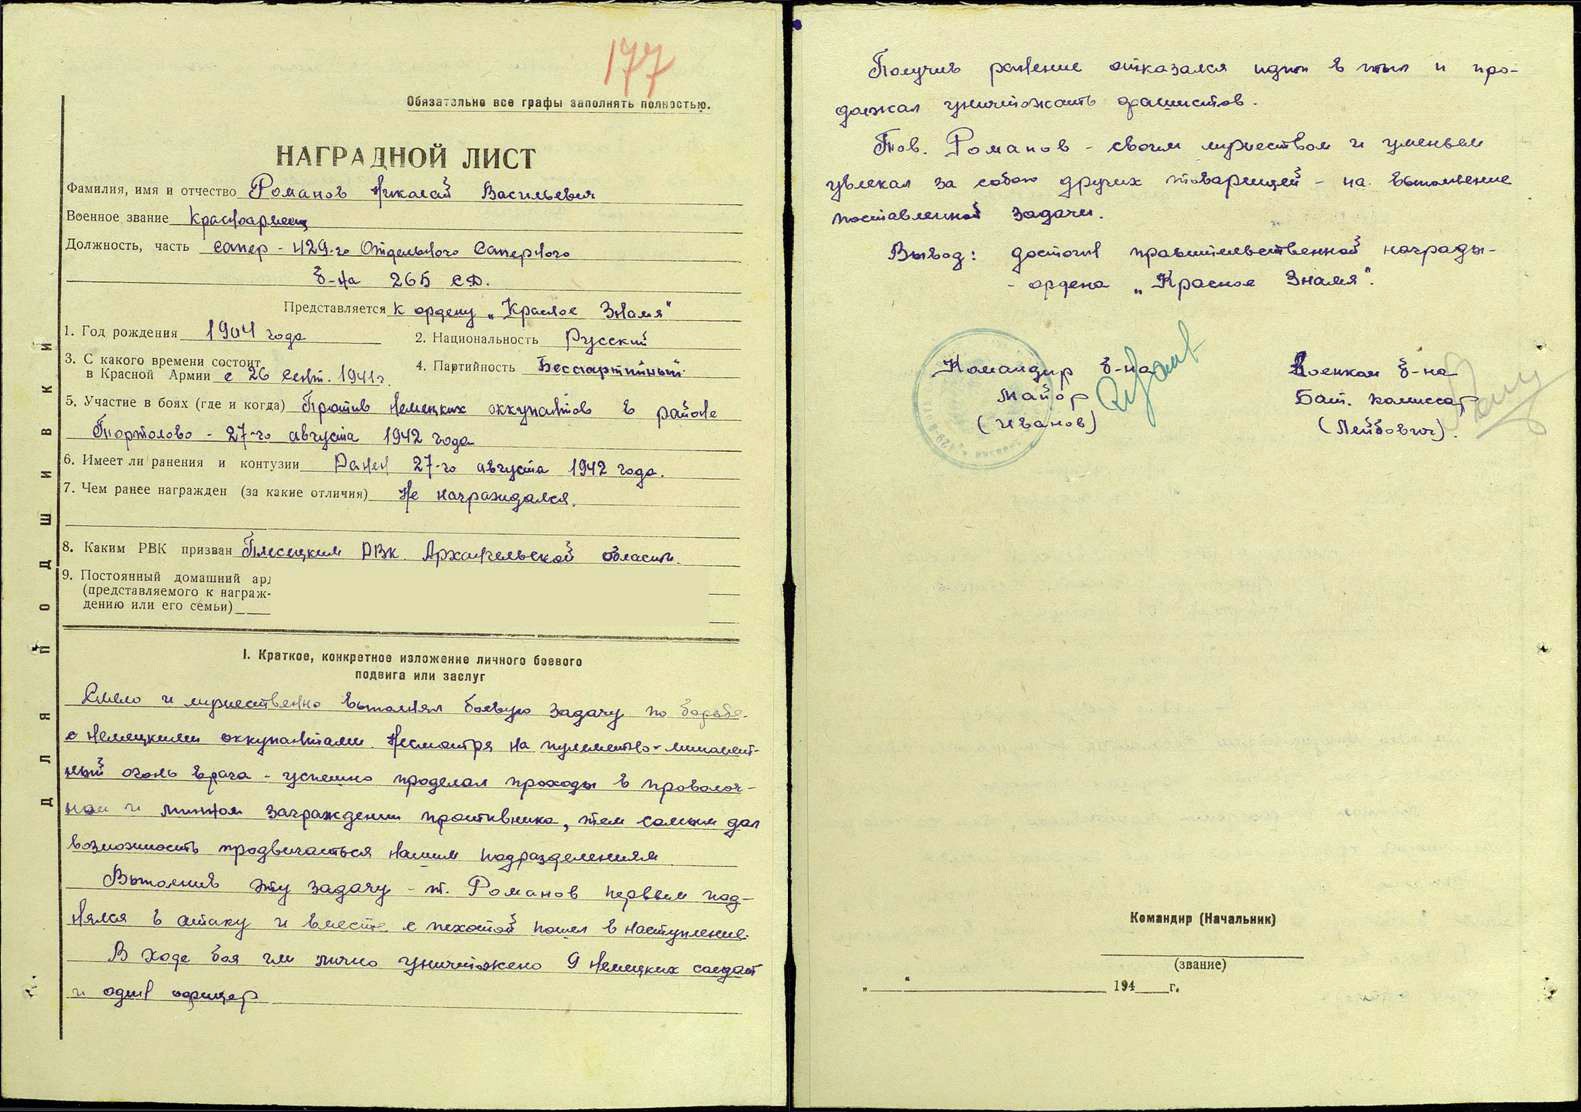 177
Обязательно все графы заполнять полностью.
НАГРАДНОЙ ЛИСТ
Фамилия, имя и отчество Романов Николай Васильевич
Военное звание Красноармеец
Должность, часть сапер - 429-го Отдельного Саперного
б-на 265 СД.
Представляется к ордену „Красное Знамя"
1. Год рождения 1904 года 2. Национальность Русский
3. С какого времени состоит
в Красной Армии с 26 сент. 1941 г. 4. Партийность Беспартийный
5. Участие в боях (где и когда) Против немецких оккупантов в районе
Тортолово - 27-го августа 1942 года
6. Имеет ли ранения и контузии Ранен 27-го августа 1942 года.
7. Чем ранее награжден (за какие отличия) Не награждался.
8. Каким РВК призван Плесецким РВК Архангельской области.
9. Постоянный домашний ад
(представляемого к награж-
дению или его семьи)
I. Краткое, конкретное изложение личного боевого
подвига или заслуг
Смело и мужественно выполнял боевую задачу по борьбе
с немецкими оккупантами. Несмотря на пулеметно-миномет-
ный огонь врага - успешно проделал проходы в проволоч-
ном и минном заграждении противника, тем самым дал
возможность продвигаться нашим подразделениям
Выполнив эту задачу - т. Романов первым под-
нялся в атаку и вместе с пехотой пошел в наступление.
В ходе боя им лично уничтожено 9 немецких солдат
и один офицер
ДЛЯ ПОДШИВКИ
Получив ранение отказался идти в тыл и про-
должал уничтожать фашистов.
Тов. Романов - своим мужеством и уменьем
увлекал за собою других товарищей - на выполнение
поставленной задачи.
Вывод: достоин правительственной награды -
- ордена „Красное Знамя".
Командир б-на Военком б-на
Майор Бат. комиссар
(Иванов) (Лейбович).
Командир (Начальник)
(звание)
„ “ 194 г.